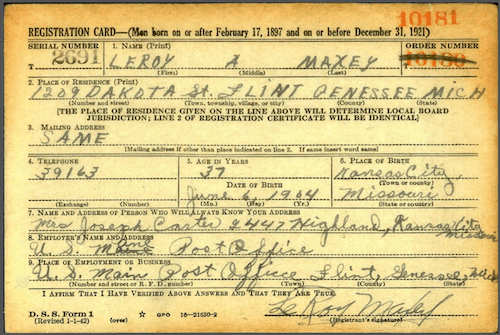 10181
REGISTRATION CARD—(Men born on or after February 17, 1897 and on or before December 31, 1921)
SERIAL NUMBER 1. NAME (Print) ORDER NUMBER
T 2691 LEROY A MAXEY T 10180
(First) (Middle) (Last)
2. PLACE OF RESIDENCE (Print)
1209 DAKOTA St. FLINT GENESSEE MICH
(Number and street) (Town, township, village, or city) (County) (State)
[THE PLACE OF RESIDENCE GIVEN ON THE LINE ABOVE WILL DETERMINE LOCAL BOARD
JURISDICTION; LINE 2 OF REGISTRATION CERTIFICATE WILL BE IDENTICAL]
3. MAILING ADDRESS
SAME
[Mailing address if other than place indicated on line 2. If same insert word same]
4. TELEPHONE 5. AGE IN YEARS 6. PLACE OF BIRTH
39163 37 Kansas City,
DATE OF BIRTH (Town or county)
June 6, 1904 Missouri
(Exchange) (Number) (Mo.) (Day) (Yr.) (State or country)
7. NAME AND ADDRESS OF PERSON WHO WILL ALWAYS KNOW YOUR ADDRESS
Mrs Joseph Carter 2447 Highland, Kansas City
Missouri
8. EMPLOYER'S NAME AND ADDRESS
U.S. Main Post Office
9. PLACE OF EMPLOYMENT OR BUSINESS
U.S. Main Post Office Flint, Genessee,
(Number and street or R. F. D. number) (Town) (County) (State)
I AFFIRM THAT I HAVE VERIFIED ABOVE ANSWERS AND THAT THEY ARE TRUE.
LeRoy Maxey
D. S. S. Form 1
(Revised 1-1-42) (over) ☆ GPO 16—21630-2 (Registrant's signature)